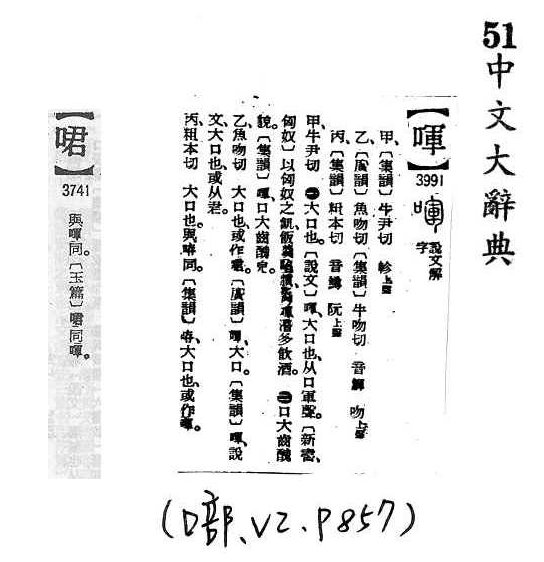 51中文大辭典
【喗】3991 喗 說文解字
甲、〔集韻〕牛尹切 軫上聲
乙、〔廣韻〕魚吻切〔集韻〕牛吻切 音齳 吻上聲
丙、〔集韻〕粗本切 音鱒 阮上聲
甲、牛尹切 ㊀大口也。〔說文〕喗、大口也、从口軍聲。〔新書、
匈奴〕以匈奴之飢飯羹啗喗多飲酒。㊁口大齒醜
貌。〔集韻〕喗、口大齒醜皃。
乙、魚吻切 大口也。或作㖥。〔廣韻〕喗、大口。〔集韻〕喗、說
文大口也或从君。
丙、粗本切 大口也。與同。〔集韻〕大口也、或作喗。
【㖥】3741
與喗同。〔玉篇〕㖥同喗。
(口部、V2、P857)